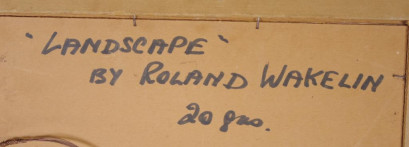 "LANDSCAPE"
BY ROLAND WAKELIN
20 gns.